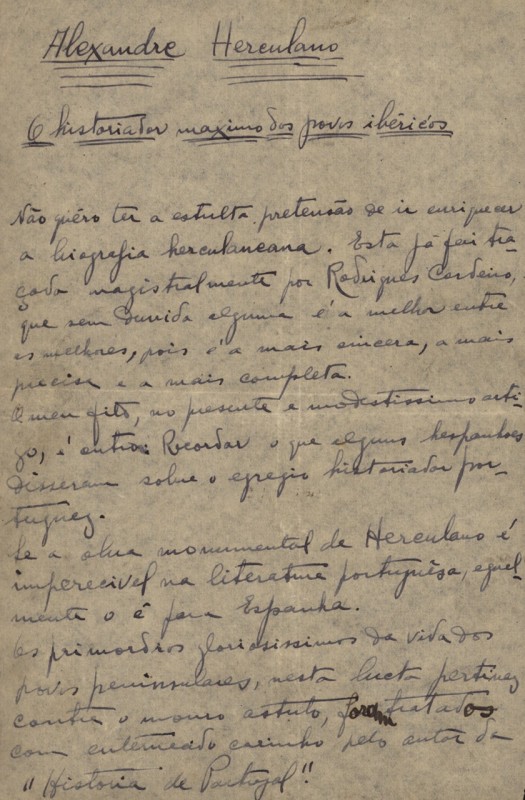 Alexandre Herculano
O historiador maximo dos povos ibéricos
Não quéro ter a estulta pretensão de ir enriquecer
a biografia herculaneana. Esta já foi tra-
çada magistralmente por Rodrigues Cordeiro,
que sem duvida alguma é a melhor entre
as melhores, pois é a mais sincera, a mais
precisa e a mais completa.
O meu fito, no presente e modestissimo arti-
go, é outro: Recordar o que alguns hespanhoes
disseram sobre o egregio historiador por-
tuguez.
Se a obra monumental de Herculano é
imperecivel na literatura portuguêsa, egual-
mente o é para Espanha.
Os primordros gloriosissimos da vida dos
povos peninsulares, nesta lucta pertinez
contra o mouro astuto, foram tratados
com enternecido carinho pelo autor da
"Historia de Portugal".